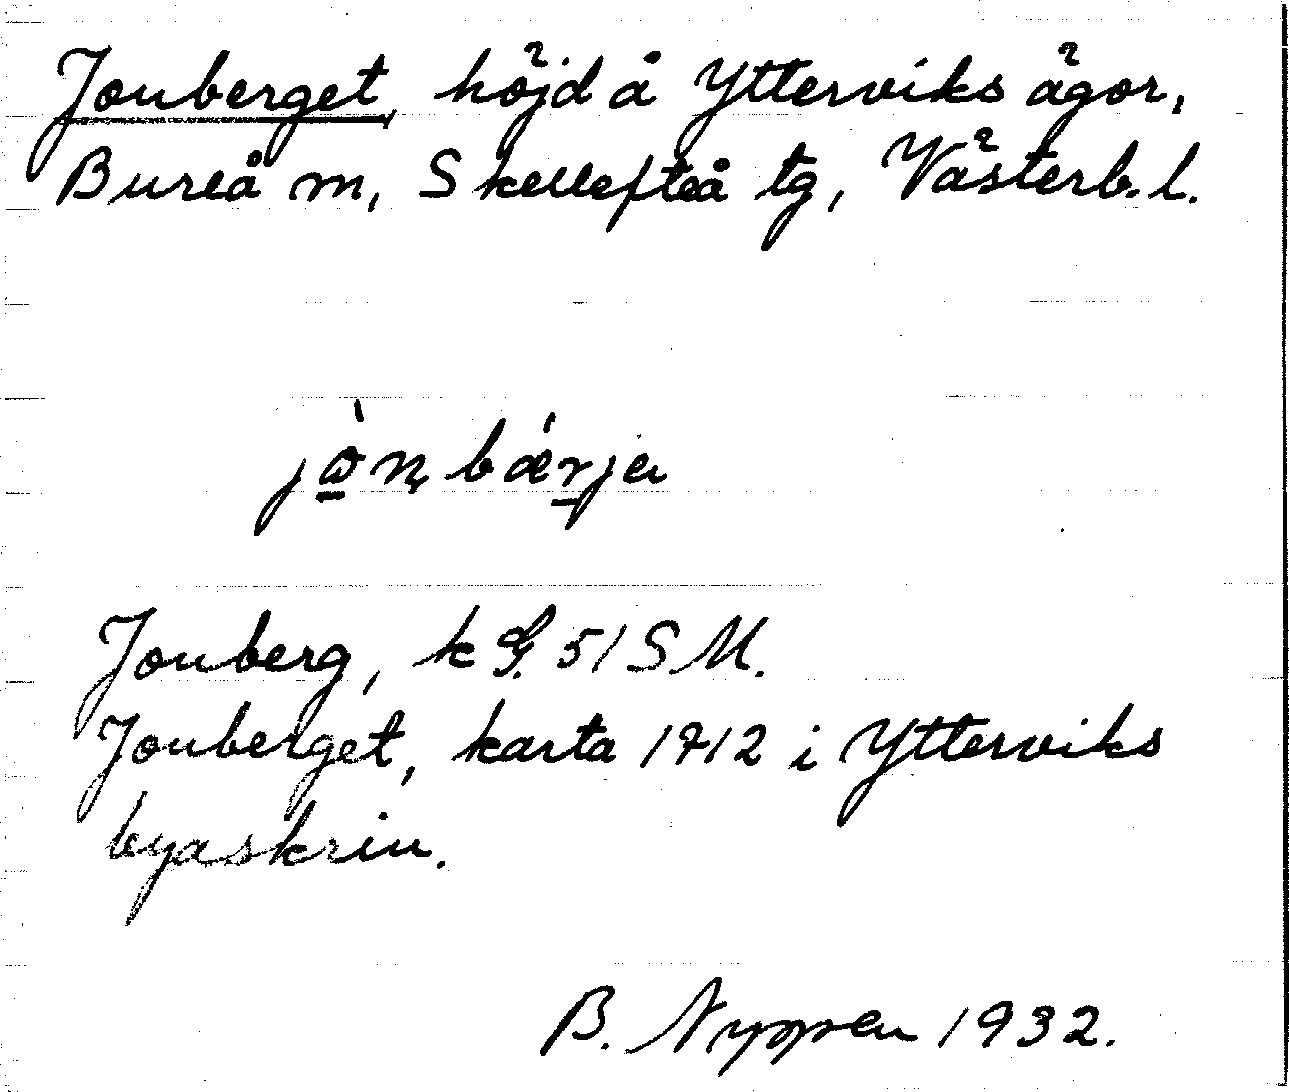 Jonberget, höjd å Ytterviks ägor,
Bureå m, Skellefteå tg, Västerb. l.
Jonberg, k G. 51 S M.
Jonberget, karta 1712 i Ytterviks
byaskrin.
B. Nyppen 1932.